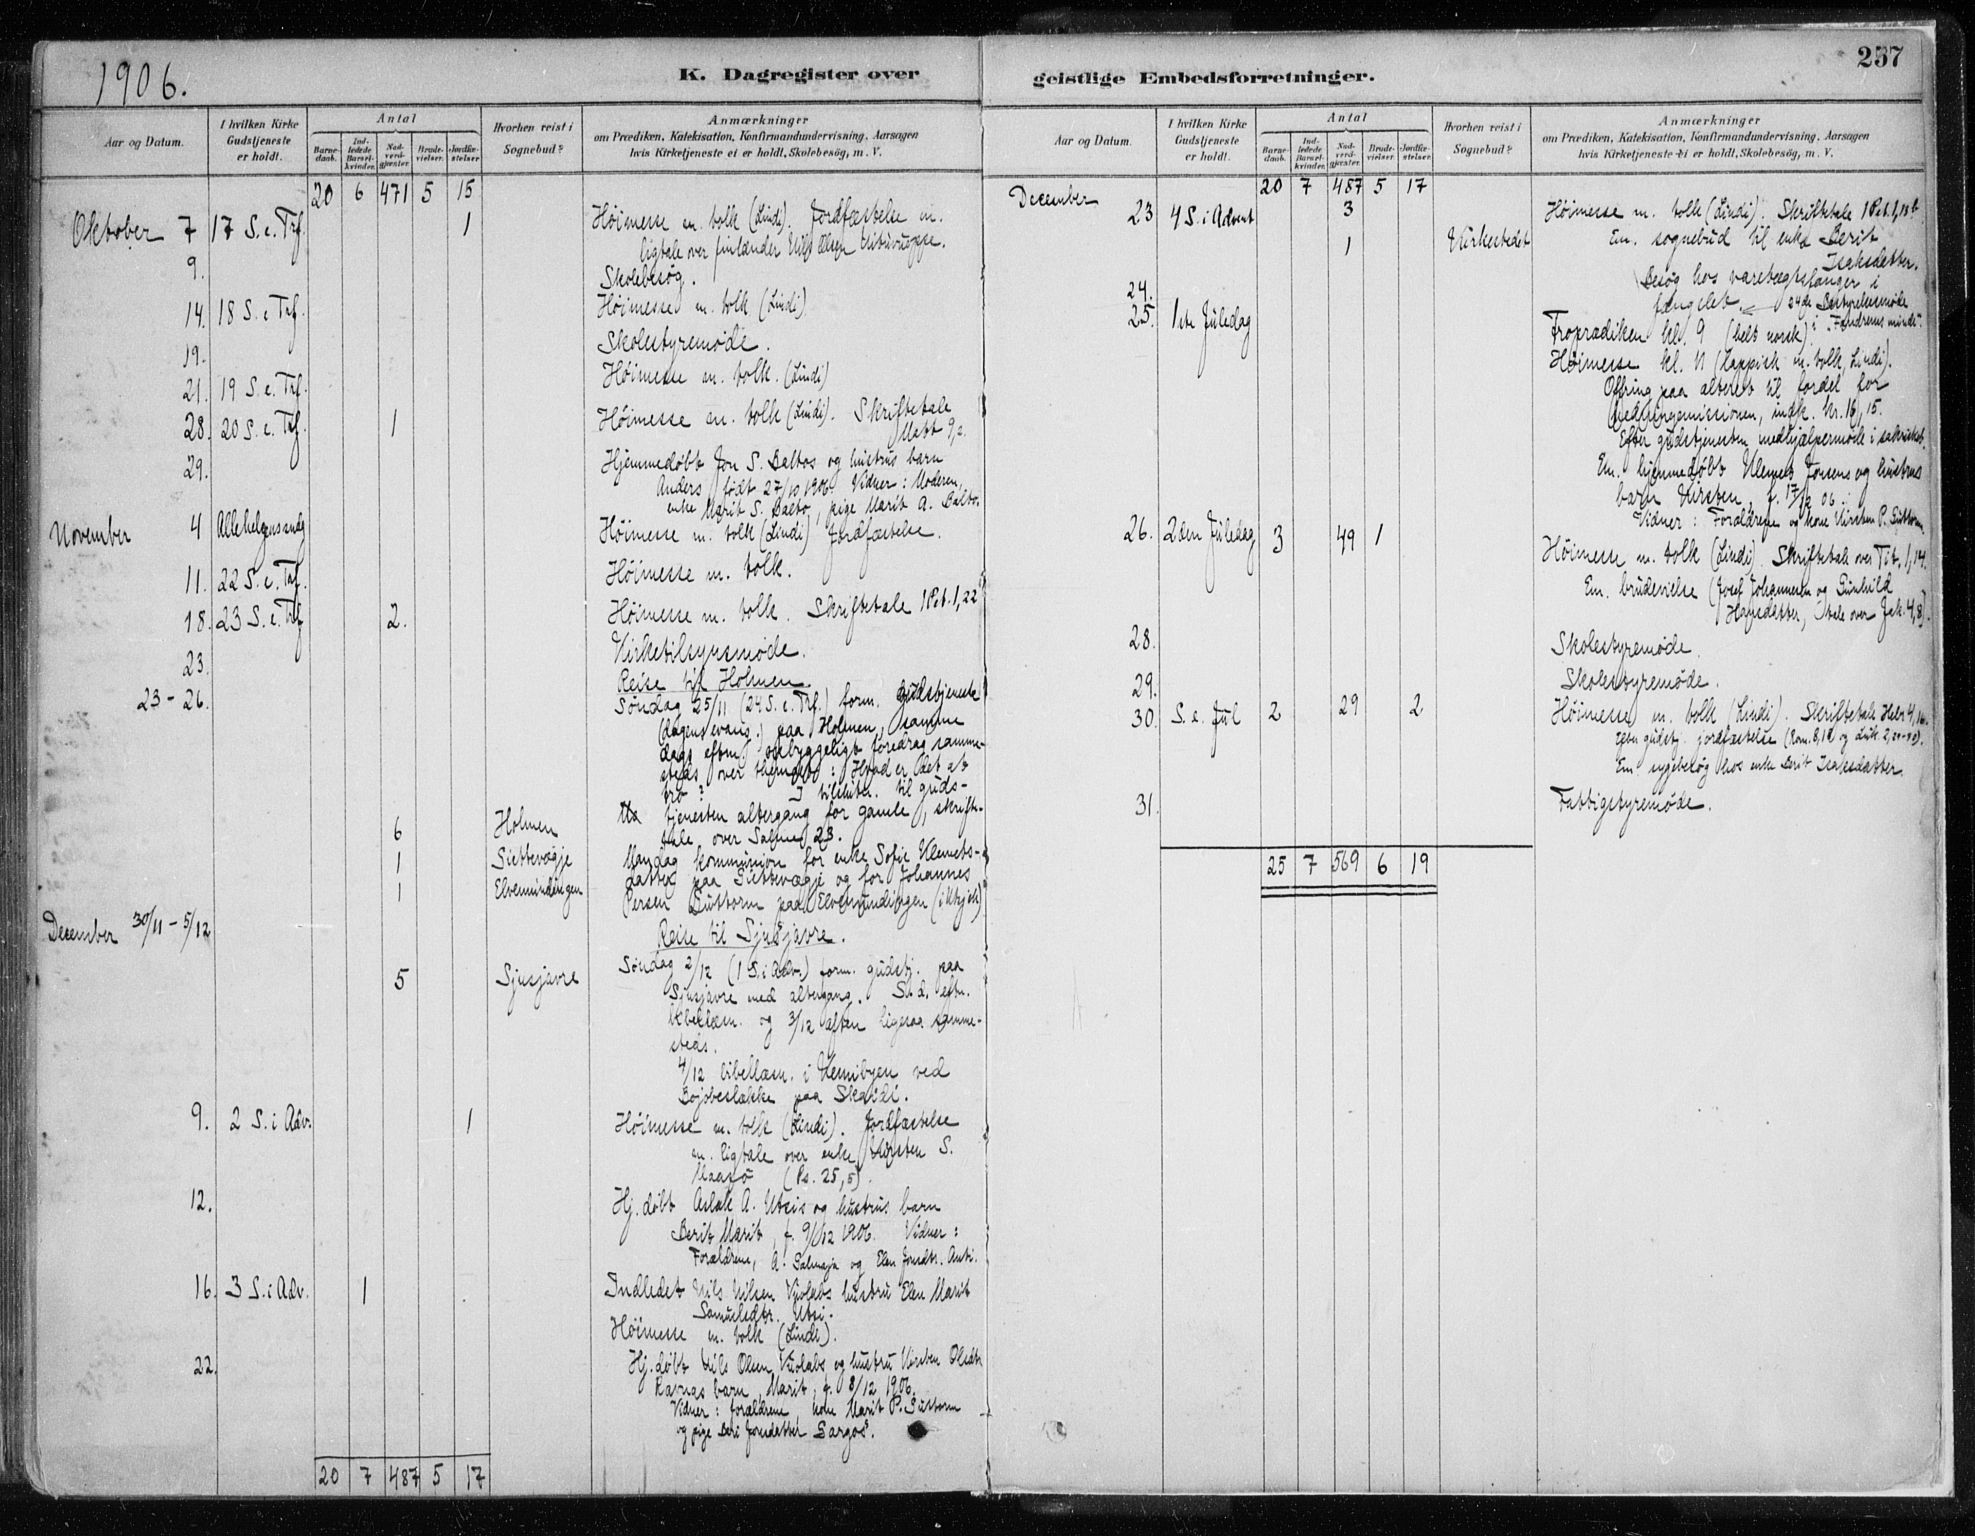 1906.
K. Dagregister over
Aar og Datum.
I hvilken Kirke Gudstjeneste er holdt.
Antal
Barne-daab.
Ind-ledede Barsel-kvinder.
Nad-verd-gjæster.
Brude-vielser.
Jordfæ-stelser
Hvorhen reist i Sognebud?
Anmærkninger
om Prædiken, Katekisation, Konfirmandundervisning, Aarsagen
hvis Kirketjeneste ei er holdt, Skolebesög, m. V.
20 6 471 5 15
Oktober 7 17 S. e. Trf. 1 Höimesse m. tolk (Lindi). Jordfæstelse m.
ligtale over finlænder
9. Skolebesøg.
14. 18 S. e. Trf. Höimesse m. tolk (Lindi)
19. Skolestyremøde.
21. 19 S. e. Trf. Höimesse m. tolk. (Lindi)
28. 20 S. e. Trf. 1 Höimesse m. tolk (Lindi). Skriftetale
Matt 9,2.
29. Hjemmedøbt Jon S. Baltos og hustrus barn
Anders, født 27/10 1906. Vidner: Moderen,
enke Marit S. Balto, pige Marit A. Balto.
November 4 Allehelgensendg Höimesse m. tolk (Lindi) Jordfæstelse.
11. 22 S. e. Trf. Höimesse m. tolk.
18. 23 S. e. Trf 2. Höimesse m. tolk. Skriftetale 1 Pet. 1,22
23. Kirketilsynsmøde.
23 - 26. Reise til Holmen.
Søndag 25/11 (24 S. e. Trf.) form. gudstjeneste
(dagens evang.) paa Holmen, samme
dags eftm. opbyggeligt foredrag samme-
steds over themaet: Hvad er det at
tro? I tilslutn. til guds-
6 Holmen tjenesten altergang for gamle, skrifte-
tale over Salme 23.
1 Siettevægje Mandag kommunion for enke Sofie Klemets-
datter paa Siettevægje og for Johannes
1 Elvemundingen Persen Guttorm paa Elvemundingen
December 30/11 - 5/12 Reise til Sjusjavre.
5 Sjusjavre Søndag 2/12 (1 S. i Adv.) form. gudstj. paa
Sjusjavre med altergang. S. d. eftm.
bibellæsn. og 3/12 aften ligesaa samme-
steds.
4/12 bibellæsn. i Remibyen ved
Bojobeskække paa Skaidi.
9. 2 S. i Adv. 1 Höimesse m. tolk (Lindi). Jordfæstelse
m. ligtale over enke Kirsten S.
(Ps. 25,5).
12. Hj. døbt Aslak A. Utsis og hustrus barn
Berit Marit, f. 9/12 1906. Vidner:
Forældrene, A. Salmaja og Elen Jonsdtr. Anti.
16. 3 S. i Adv. 1 Indledet Nils Nilsen Kvolabs hustru Elen Marit
Samuelsdtr. Utsi.
Höimesse m. tolk (Lindi).
22. Hj. døbt Nils Olsen Kvolabs og hustru Kirsten Olsdtr
Ravnas barn, Marit, f. 8/12 1906.
Vidner: forældrene kone Marit P. Guttorm
og pige Beri Jonsdatter Gargos.
20 7 487 5 17
geistlige Embedsforretninger.
257
Aar og Datum.
I hvilken Kirke Gudstjeneste er holdt.
Antal
Barne-daab.
Ind-ledede Barsel-kvinder.
Nad-verd-gjæster.
Brude-vielser
Jordfæ-stelser.
Hvorhen reist i Sognebud?
Anmærkninger
om Prædiken, Katekisation, Konfirmandundervisning, Aarsagen
hvis Kirketjeneste ei er holdt, Skolebesøg, m. V.
20 7 487 5 17
December 23 4 S. i Advent 3 Höimesse m. tolk (Lindi). Skriftetale 1 Pet. 1,
1 Kirkestedet Em. sognebud til enke Berit
Isaksdatter.
24. Besøg hos varetægtsfanger i
fængslet. 24de Bestyrelsesmøde
i "Fændrens minde".
25. 1ste Juledag Froprædiken kl. 9 (helt norsk).
Höimesse kl. 11 (Lappisk m. tolk, Lindi).
Offring paa alteret til fordel for
hedningemissionen, indk. kr. 16,15.
Efter gudstjenesten medhjælpermøde i sakristiet.
Em. hjemmedøbt Klemet Jonsens og hustrus
barn Kirsten, f. 17/12 06.
Vidner: Forældrene og kone Kirsten P. Guttorm
26. 2den Juledag 3 49 1 Höimesse m. tolk (Lindi). Skriftetale over Tit. 1,14.
Em. brudevielse (Josef Johannesen og Gunhild
Hansdatter, tale over Jak. 4,8).
28. Skolestyremøde.
29. Skolestyremøde.
30. S. e. Jul 2 29 2 Höimesse m. tolk (Lindi). Skriftetale Hebr 4,16.
efter gudstj. jordfæstelse (Rom. 8,18 og Luk. 2,29-32).
Em sygebesøg hos enke Berit Isaksdatter.
31. Fattigstyremøde.
25 7 569 6 19